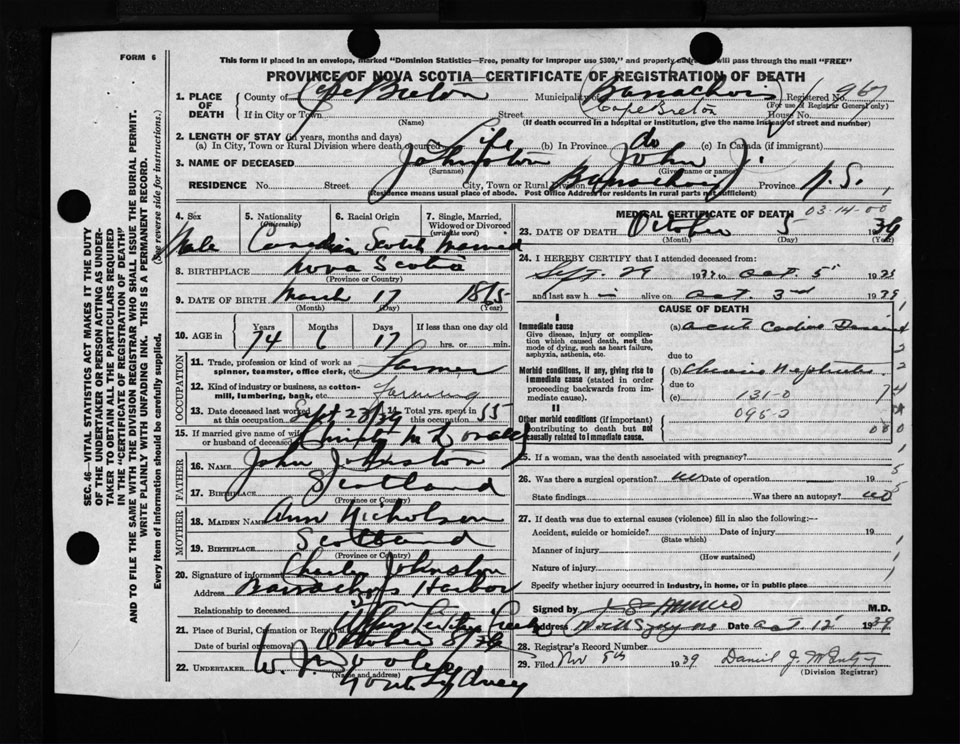 FORM 6
This form if placed in an envelope, marked "Dominion Statistics—Free, penalty for improper use $300," and properly addressed will pass through the mail "FREE"
PROVINCE OF NOVA SCOTIA—CERTIFICATE OF REGISTRATION OF DEATH
1. PLACE OF DEATH County of Cape Breton Municipality of Barrachois Registered No. 967
(For use of Registrar General only)
If in City or Town Street Cape Breton House No.
(Name) (If death occurred in a hospital or institution, give the name instead of street and number)
2. LENGTH OF STAY (in years, months and days)
(a) In City, Town or Rural Division where death occured Life (b) In Province do (c) In Canada (if immigrant)
3. NAME OF DECEASED Johnston John J.
(Surname) (Given name or names)
RESIDENCE No. Street City, Town or Rural Division Barrachois Province N.S.
(Residence means usual place of abode. Post Office Address for residents in rural parts not sufficient)
SEC. 46—VITAL STATISTICS ACT MAKES IT THE DUTY
OF THE UNDERTAKER OR PERSON ACTING AS UNDER-
TAKER TO OBTAIN ALL THE PARTICULARS REQUIRED
IN THE "CERTIFICATE OF REGISTRATION OF DEATH"
AND TO FILE THE SAME WITH THE DIVISION REGISTRAR WHO SHALL ISSUE THE BURIAL PERMIT.
WRITE PLAINLY WITH UNFADING INK. THIS IS A PERMANENT RECORD.
Every item of information should be carefully supplied. (See reverse side for instructions.)
4. Sex 5. Nationality (Citizenship) 6. Racial Origin 7. Single, Married, Widowed or Divorced (write the word)
Male Canadian Scotch Married
8. BIRTHPLACE Nova Scotia
(Province or Country)
9. DATE OF BIRTH March 17 1865
(Month) (Day) (Year)
10. AGE in Years Months Days If less than one day old
74 6 17 hrs. or min.
OCCUPATION
11. Trade, profession or kind of work as spinner, teamster, office clerk, etc. Farmer
12. Kind of industry or business, as cotton-mill, lumbering, bank, etc. farming
13. Date deceased last worked at this occupation Sept 23/39 Total yrs. spent in this occupation 55
15. If married give name of wife or husband of deceased Christy McDonald
FATHER
16. NAME John Johnston
17. BIRTHPLACE Scotland
(Province or Country)
MOTHER
18. MAIDEN NAME Ann Nicholson
19. BIRTHPLACE Scotland
(Province or Country)
20. Signature of informant Charley Johnston
Address Barrachois Harbor
Relationship to deceased Son
21. Place of Burial, Cremation or Removal
Date of burial or removal October 8/39
22. UNDERTAKER W. J. Dooley
(Name and address)
North Sydney
MEDICAL CERTIFICATE OF DEATH 03-14-00
23. DATE OF DEATH October 5 1939
(Month) (Day) (Year)
24. I HEREBY CERTIFY that I attended deceased from:
Sept. 29 1939 to Oct. 5 1939
and last saw h im alive on Oct. 3rd 1939
CAUSE OF DEATH
I
Immediate cause (a) acute Cardiac
Give disease, injury or complication which caused death, not the mode of dying, such as heart failure, asphyxia, asthenia, etc. due to
Morbid conditions, if any, giving rise to immediate cause (stated in order proceeding backwards from immediate cause). (b) Chronic Nephritis
due to
(c) 131-0
II
Other morbid conditions (if important) contributing to death but not causally related to immediate cause. 095-2
25. If a woman, was the death associated with pregnancy?
26. Was there a surgical operation? no Date of operation 19
State findings Was there an autopsy? no
27. If death was due to external causes (violence) fill in also the following:—
Accident, suicide or homicide? Date of injury 19
(State which)
Manner of injury
(How sustained)
Nature of injury
Specify whether injury occurred in industry, in home, or in public place
Signed by M.D.
Address North Sydney NS Date Oct. 12 1939
28. Registrar's Record Number
29. Filed Nov 9th 1939 Daniel J.
(Division Registrar)